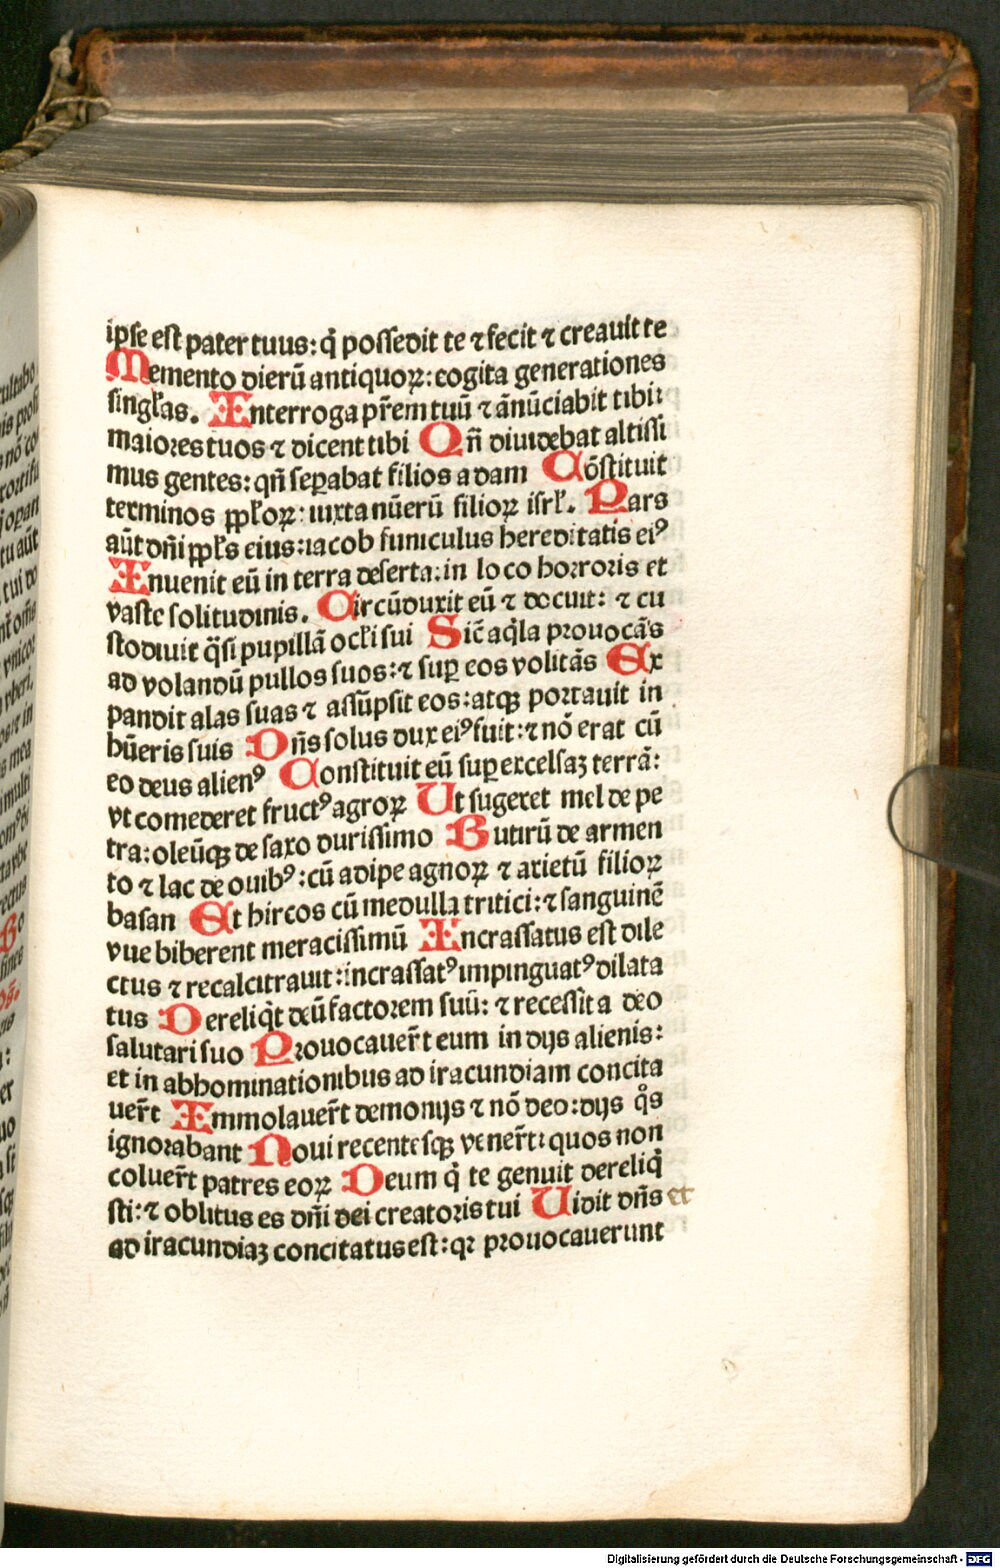 ipse est pater tuus: q̇ possedit te ⁊ fecit ⁊ creauit te
Memento dierū antiquoꝝ: cogita generationes
singl̓as. Interroga pr̄em tuū ⁊ ānūciabit tibi:
maiores tuos ⁊ dicent tibi Qn̄ diuidebat altissi
mus gentes: qn̄ seꝑabat filios adam Cōstituit
terminos ppl̓oꝝ: iuxta nūerū filioꝝ isrl̓. Pars
aūt dn̄i ppl̓s eius: iacob funiculus hereditatis eiꝰ
Inuenit eū in terra deserta: in loco horroris et
vaste solitudinis. Circūduxit eū ⁊ docuit: ⁊ cu
stodiuit q̄si pupillā ocl̓i sui Sic̄ aq̇la prouocās
ad volandū pullos suos: ⁊ suꝑ eos volitās Ex
pandit alas suas ⁊ assūpsit eos: atqꝫ portauit in
hūeris suis Dn̄s solus dux eiꝰ fuit: ⁊ nō erat cū
eo deus alienꝰ Constituit eū suꝑ excelsaꝫ terrā:
vt comederet fructꝰ agroꝝ Ut sugeret mel de pe
tra: oleūqꝫ de saxo durissimo Butirū de armen
to ⁊ lac de ouibꝰ: cū adipe agnoꝝ ⁊ arietū filioꝝ
basan Et hircos cū medulla tritici: ⁊ sanguinē
vue biberent meracissimū Incrassatus est dile
ctus ⁊ recalcitrauit: incrassatꝰ impinguatꝰ dilata
tus Dereliq̇t deū factorem suū: ⁊ recessit a deo
salutari suo Prouocauer̄t eum in dijs alienis:
et in abhominationibus ad iracundiam concita
uer̄t Immolauer̄t demonijs ⁊ nō deo: dijs q̊s
ignorabant Noui recentesqꝫ vener̄t: quos non
coluer̄t patres eoꝝ Deum q̇ te genuit dereliq̇
sti: ⁊ oblitus es dn̄i dei creatoris tui Uidit dn̄s et
ad iracundiaꝫ concitatus est: qꝛ prouocauerunt
Digitalisierung gefördert durch die Deutsche Forschungsgemeinschaft - DFG